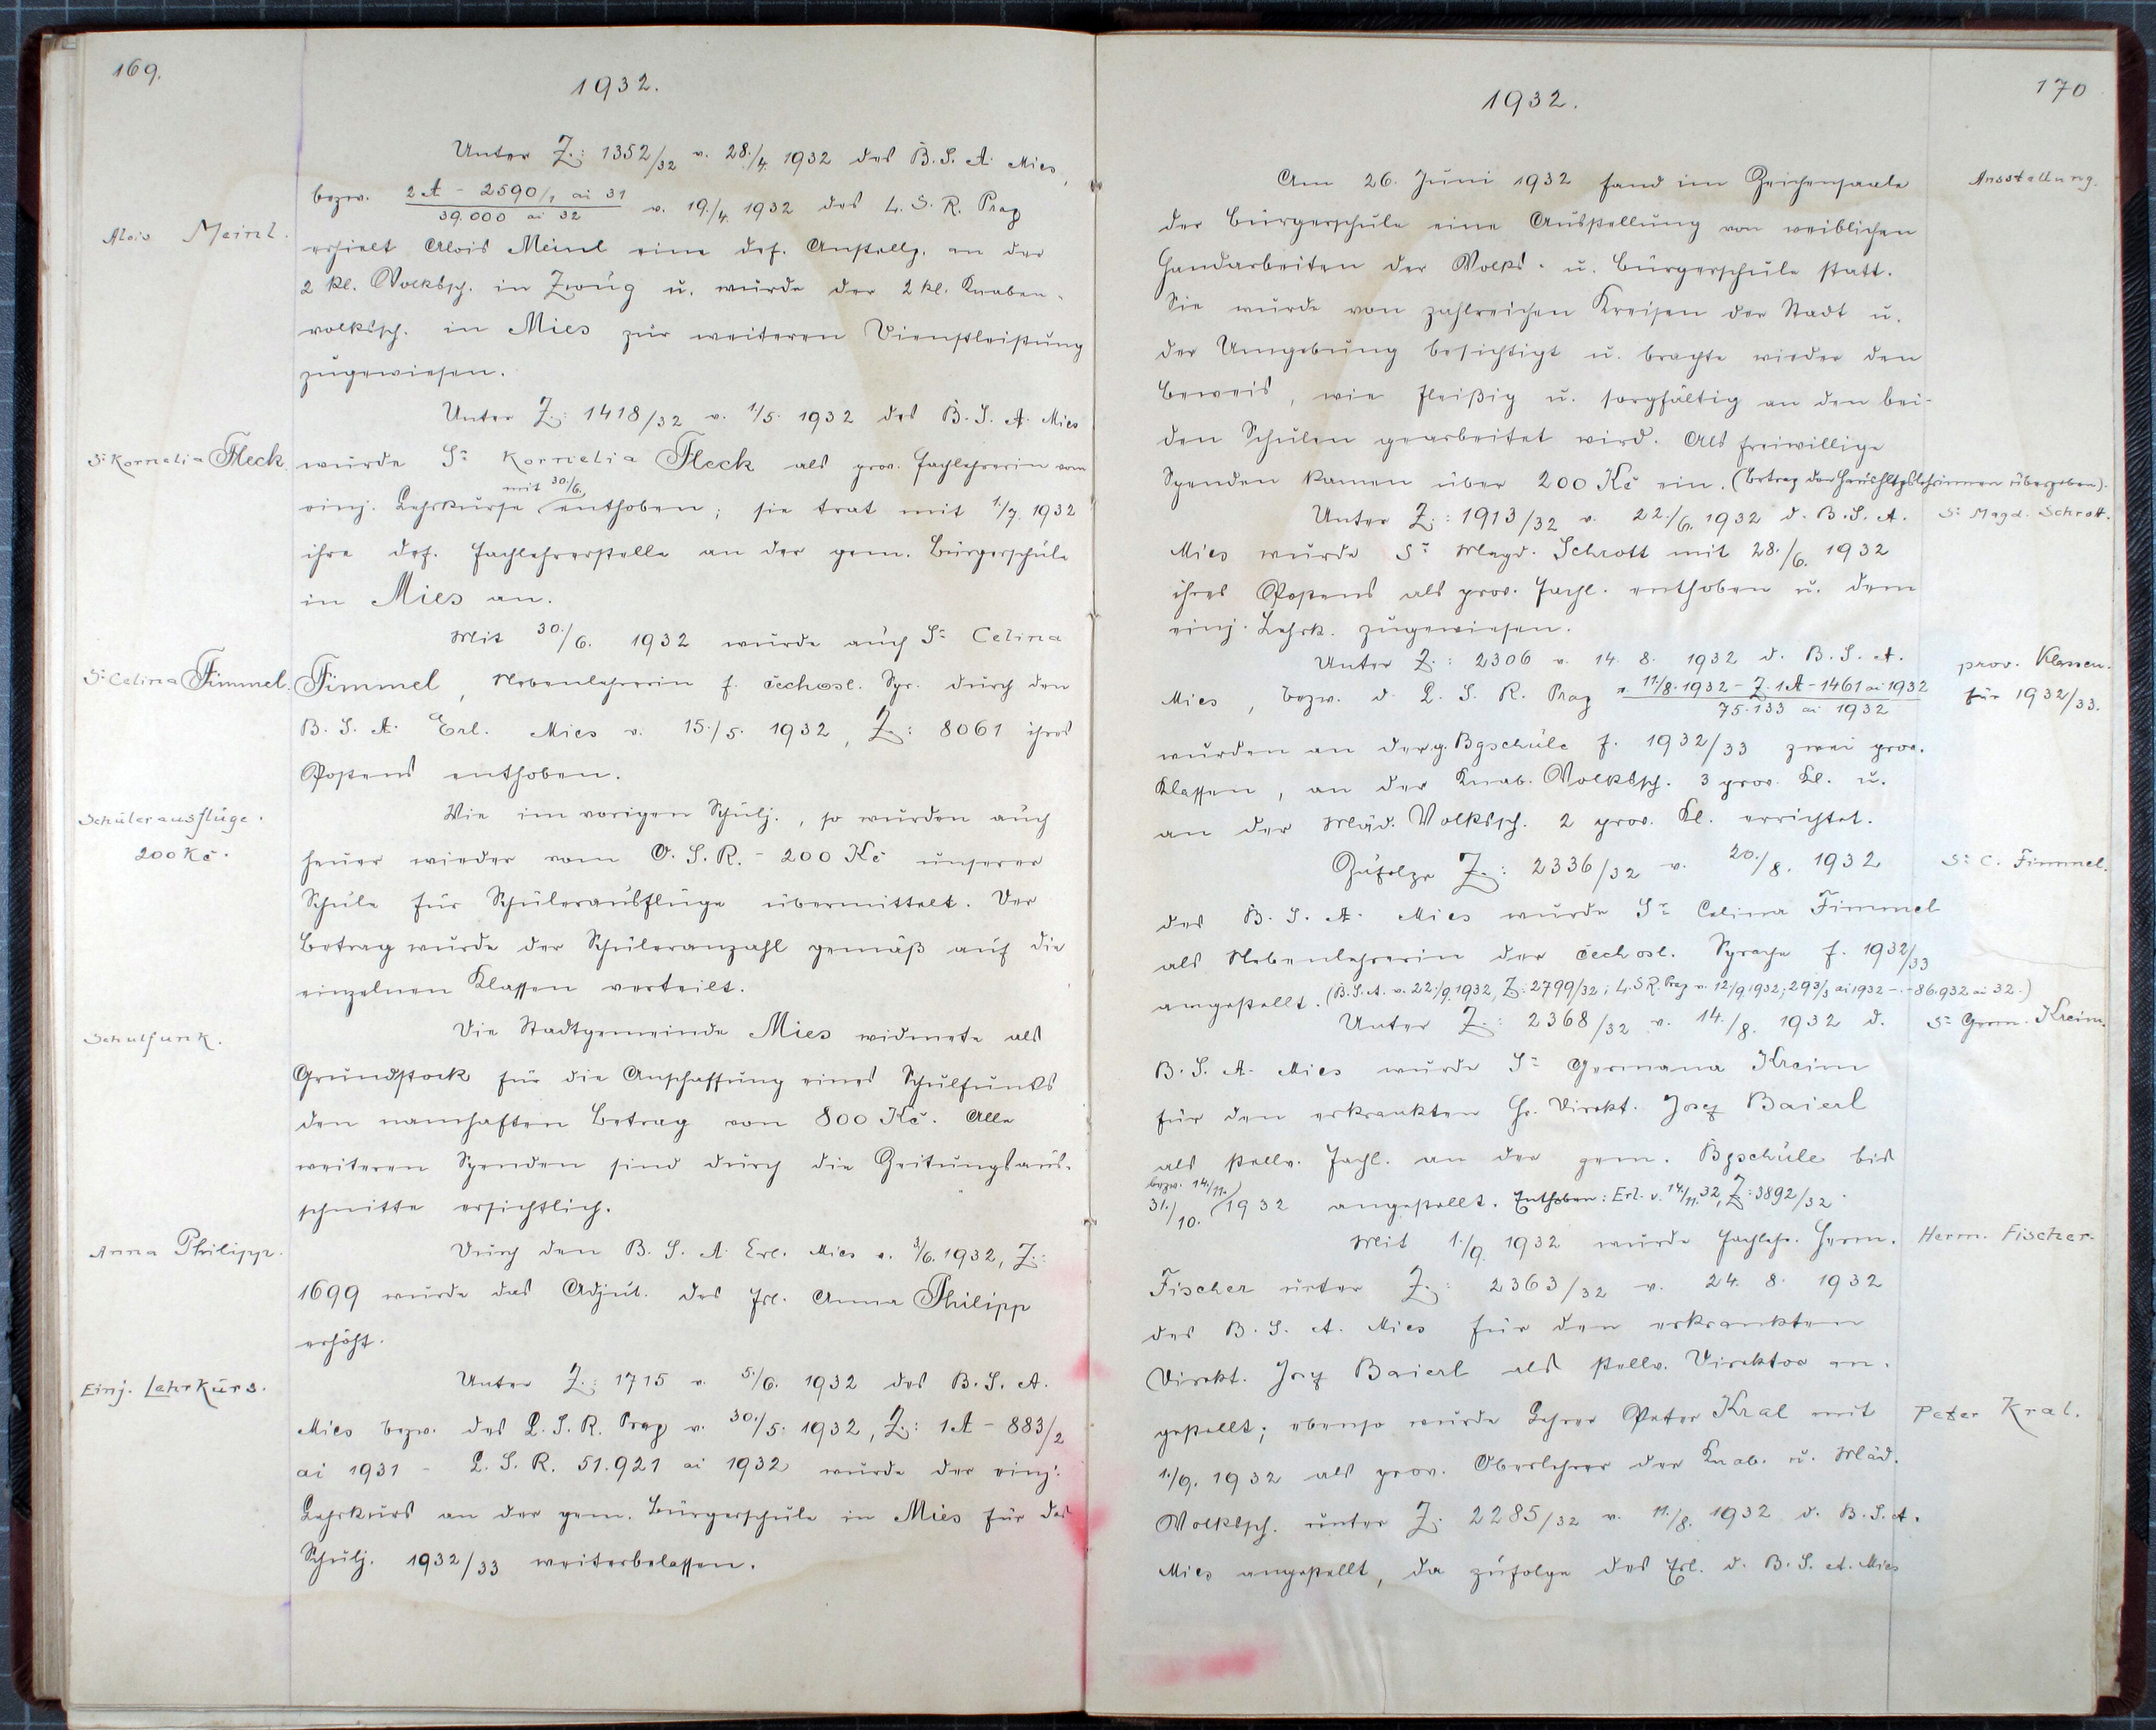 169.
1932.
Unter Z.: 1352/32 v. 28./4. 1932 des B.S.A. Mies,
bezw. 2A - 2590/1 ai 31 / 39.000 ai 32 v. 19./4. 1932 des L.S.R. Prag
Alois Meinl.
erhielt Alois Meinl eine def. Anstellg. an der
2 kl. Volkssch. in Zwug u. wurde der 2 kl. Knaben-
volkssch. in Mies zur weiteren Dienstleistung
zugewiesen.
Unter Z.: 1418/32 v. 1/5. 1932 des B.S.A. Mies
Sr Kornelia Fleck.
wurde Sr Kornelia Fleck als prov. Fachlehrerin vom
einj. Lehrkurse mit 30./6. enthoben; sie trat mit 1/7. 1932
ihre def. Fachlehrerstelle an der gem. Bürgerschule
in Mies an.
Mit 30./6. 1932 wurde auch Sr Celina
Sr Celina Fimmel.
Fimmel, Nebenlehrerin f. čechosl. Spr. durch den
B.S.A. Erl. Mies v. 15./5. 1932, Z.: 8061 ihres
Postens enthoben.
Schülerausflüge.
200 Kč.
Wie im vorigen Schulj., so wurden auch
heuer wieder vom O.S.R. - 200 Kč unserer
Schule für Schülerausflüge übermittelt. Der
Betrag wurde der Schüleranzahl gemäß auf die
einzelnen Klassen verteilt.
Schulfunk.
Die Stadtgemeinde Mies widmete als
Grundstock für die Anschaffung eines Schulfunks
den namhaften Betrag von 800 Kč. Alle
weiteren Spenden sind durch die Zeitungsaus-
schnitte ersichtlich.
Anna Philipp.
Durch den B.S.A. Erl. Mies v. 3/6. 1932, Z.:
1699 wurde das Adjut. des Frl. Anna Philipp
erhöht.
Einj. Lehrkurs.
Unter Z.: 1715 v. 5./6. 1932 des B.S.A.
Mies bezw. des L.S.R. Prag v. 30./5. 1932, Z.: 1A - 883/2
ai 1931 - L.S.R. 51.921 ai 1932 wurde der einj.
Lehrkurs an der gem. Bürgerschule in Mies für das
Schulj. 1932/33 weiterbelassen.
170
1932.
Ausstellung.
Am 26. Juni 1932 fand im Zeichensaale
der Bürgerschule eine Ausstellung von weiblichen
Handarbeiten der Volks- u. Bürgerschule statt.
Sie wurde von zahlreichen Kreisen der Stadt u.
der Umgebung besichtigt u. brachte wieder den
Beweis, wie fleißig u. sorgfältig an den bei-
den Schulen gearbeitet wird. Als freiwillige
Spenden kamen über 200 Kč ein. (Betrag den Haushltgslehrerinnen übergeben).
Unter Z.: 1913/32 v. 22./6. 1932 d. B.S.A.
Sr Magd. Schrott.
Mies wurde Sr Magd. Schrott mit 28./6. 1932
ihres Postens als prov. Fachl. enthoben u. dem
einj. Lehrk. zugewiesen.
Unter Z.: 2306 v. 14. 8. 1932 d. B.S.A.
prov. Klassen.
für 1932/33.
Mies, bezw. d. L.S.R. Prag v. 11/8. 1932 - Z. 1A - 1461 ai 1932 / 75.133 ai 1932
wurden an der g. Bgschule f. 1932/33 zwei prov.
Klassen, an der Knab. Volkssch. 3 prov. Kl. u.
an der Mäd. Volkssch. 2 prov. Kl. errichtet.
Zufolge Z.: 2336/32 v. 20./8. 1932
Sr C. Fimmel.
des B.S.A. Mies wurde Sr Celina Fimmel
als Nebenlehrerin der čechosl. Sprache f. 1932/33
angestellt. (B.S.A. v. 22./9. 1932, Z: 2799/32; L.S.R. Prag v. 12/9. 1932; 293/3 ai 1932 - 86.932 ai 32.)
Unter Z.: 2368/32 v. 14./8. 1932 d.
Sr Germ. Kreim.
B.S.A. Mies wurde Sr Germana Kreim
für den erkrankten H. Direkt. Josef Baierl
als stellv. Fachl. an der gem. Bgschule bis
31./10. bezw. 14./11. 1932 angestellt. Enthoben: Erl. v. 14/11. 32, Z: 3892/32.
Mit 1./9. 1932 wurde Fachlehr. Herm.
Herm. Fischer.
Fischer unter Z.: 2363/32 v. 24. 8. 1932
des B.S.A. Mies für den erkrankten
Direkt. Josef Baierl als stellv. Direktor an-
gestellt; ebenso wurde Lehrer Peter Kral mit
Peter Kral.
1./9. 1932 als prov. Oberlehrer der Knab. u. Mäd.
Volkssch. unter Z. 2285/32 v. 11./8. 1932 d. B.S.A.
Mies angestellt, da zufolge des Erl. d. B.S.A. Mies